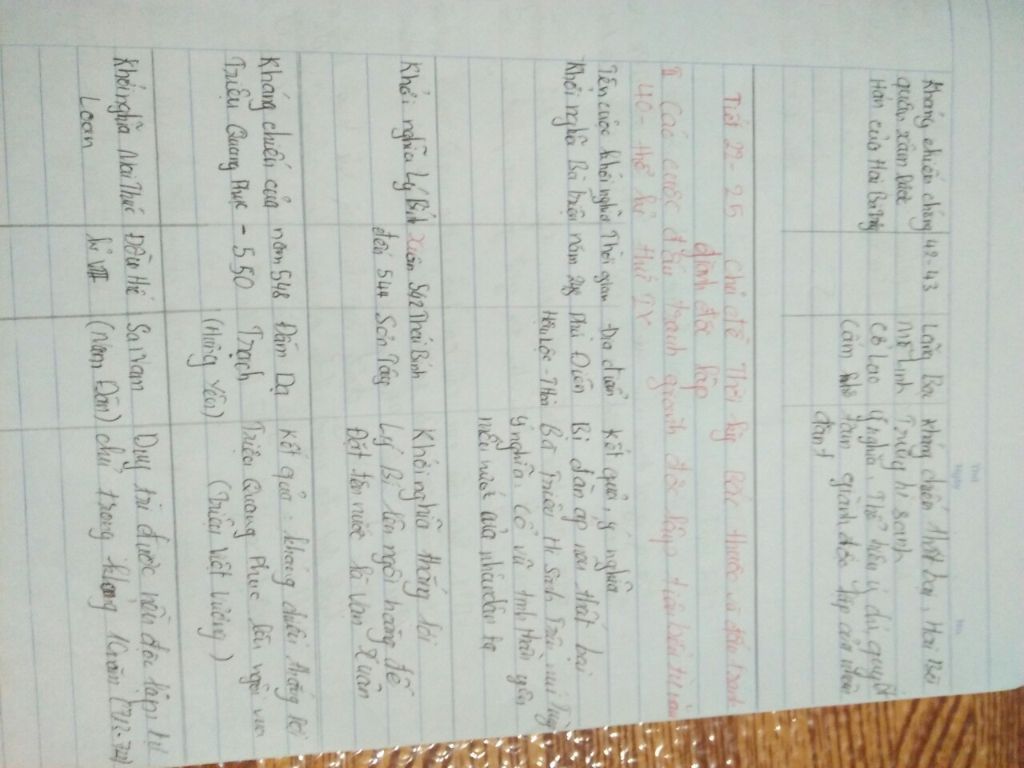 Kháng chiến chống 42-43 Lãng Bạc Kháng chiến thất bại, Hai Bà
quân xâm lược Mê Linh Trưng hi sinh
Hán của Hai Bà Trưng Cổ Loa Ý nghĩa: Thể hiện ý chí quyết
Cấm Khê tâm giành độc lập của nhân
dân ta
Tiết 22-25 chủ đề Thời kỳ Bắc thuộc và đấu tranh
giành độc lập
I Các cuộc đấu tranh giành độc lập tiêu biểu từ năm
40 - thế kỉ thứ IX
Tên cuộc khởi nghĩa Thời gian Địa điểm Kết quả, ý nghĩa
Khởi nghĩa Bà Triệu năm 248 Phú Điền Bị đàn áp nên thất bại
Hậu Lộc - Thanh Bà Triệu Hi Sinh Trên núi Tùng
ý nghĩa: Cổ vũ tinh thần yêu
nước của nhân dân ta
Khởi nghĩa Lý Bí Xuân 542 Thái Bình Khởi nghĩa thắng lợi
đến 544 Sơn Tây Lý Bí lên ngôi hoàng đế
Đặt tên nước là Vạn Xuân
Kháng chiến của năm 548 Đầm Dạ Kết quả: kháng chiến thắng lợi
Triệu Quang Phục - 550 Trạch Triệu Quang Phục lên ngôi vua
(Hưng Yên) (Triệu Việt Vương)
Khởi nghĩa Mai Thúc Đầu thế Sa Nam Duy trì được nền độc lập tự
Loan kỉ VIII (Nam Đàn) chủ trong khoảng 10 năm (713-722)